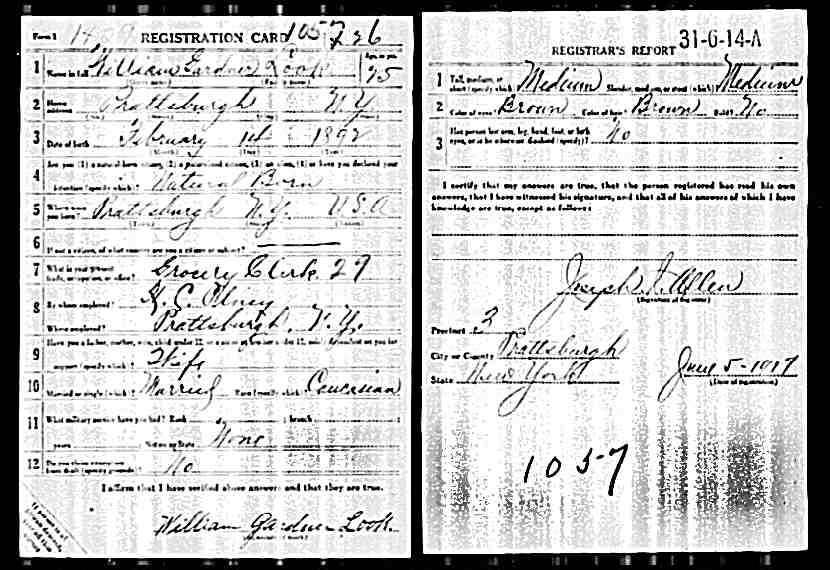 Form 1 REGISTRATION CARD 105 726
1 Name in full William Gardner Look Age, in yrs. 25
2 Home address Prattsburgh N.Y.
3 Date of birth February 1st 1892
(Month) (Day) (Year)
Are you (1) a natural born citizen, (2) a naturalized citizen, (3) an alien, (4) or have you declared your
4 intention (specify which)? Natural Born
5 Where were you born? Prattsburgh N.Y. U.S.A
6 If not a citizen, of what country are you a citizen or subject?
7 What is your present trade, occupation, or office? Grocery Clerk 29
8 By whom employed? Olney
Where employed? Prattsburgh, N.Y.
Have you a father, mother, wife, child under 12, or a sister or brother under 12, solely dependent on you for
9 support (specify which)? Wife
10 Married or single (which)? Married Race (specify which)? Caucasian
11 What military service have you had? Rank ; branch
years ; Nation or State None
12 Do you claim exemption from draft (specify grounds)? No
I affirm that I have verified above answers and that they are true.
William Gardner Look
REGISTRAR'S REPORT 31-6-14-A
1 Tall, medium, or short (specify which)? Medium Slender, medium, or stout (which)? Medium
2 Color of eyes? Brown Color of hair? Brown Bald? No
3 Has person lost arm, leg, hand, foot, or both eyes, or is he otherwise disabled (specify)? No
I certify that my answers are true, that the person registered has read his own
answers, that I have witnessed his signature, and that all of his answers of which I have
knowledge are true, except as follows:
Joseph Allen
(Signature of registrar)
Precinct 3
City or County Prattsburgh
State New York June 5-1917
(Date of registration)
1057